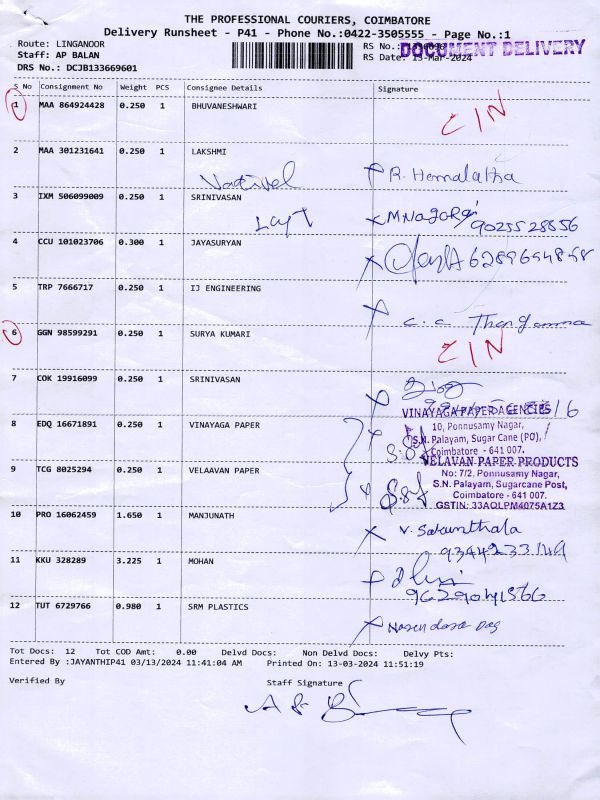 THE PROFESSIONAL COURIERS, COIMBATORE
Delivery Runsheet - P41 - Phone No.:0422-3505555 - Page No.:1
Route: LINGANOOR
Staff: AP BALAN
DRS No.: DCJB133669601
RS No.:
DOCUMENT DELIVERY
RS Date: 13-Mar-2024
S No Consignment No Weight PCS Consignee Details Signature
1 MAA 864924428 0.250 1 BHUVANESHWARI
2 MAA 301231641 0.250 1 LAKSHMI R. Hemalatha
3 IXM 506099009 0.250 1 SRINIVASAN M.Nagaraj
9025528556
4 CCU 101023706 0.300 1 JAYASURYAN
5 TRP 7666717 0.250 1 IJ ENGINEERING C.C Thangamma
6 GGN 98599291 0.250 1 SURYA KUMARI
7 COK 19916099 0.250 1 SRINIVASAN
8 EDQ 16671891 0.250 1 VINAYAGA PAPER
VINAYAGA PAPER AGENCIES
10, Ponnusamy Nagar,
S.N. Palayam, Sugar Cane (PO),
Coimbatore - 641 007.
9 TCG 8025294 0.250 1 VELAAVAN PAPER
VELAVAN PAPER PRODUCTS
No: 7/2, Ponnusamy Nagar,
S.N. Palayam, Sugarcane Post,
Coimbatore - 641 007.
GSTIN: 33AQLPM4075A1Z3
10 PRO 16062459 1.650 1 MANJUNATH V. Sakunthala
11 KKU 328289 3.225 1 MOHAN
12 TUT 6729766 0.980 1 SRM PLASTICS
Tot Docs: 12 Tot COD Amt: 0.00 Delvd Docs: Non Delvd Docs: Delvy Pts:
Entered By :JAYANTHIP41 03/13/2024 11:41:04 AM Printed On: 13-03-2024 11:51:19
Verified By Staff Signature